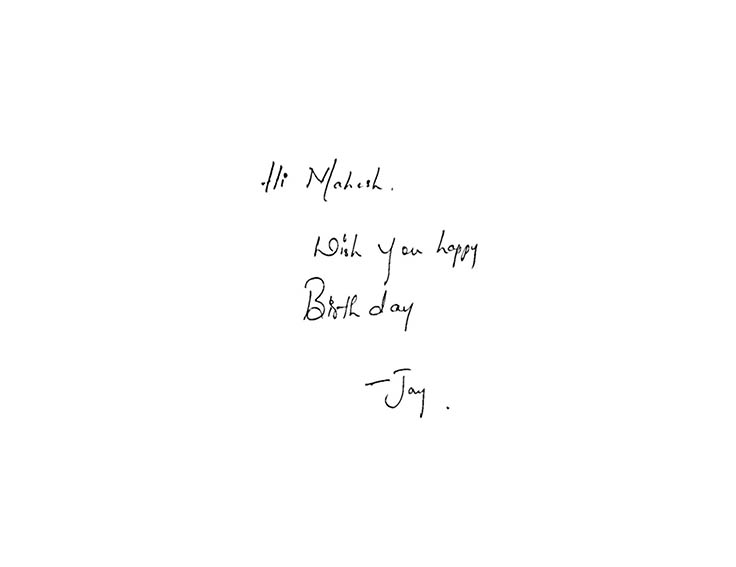 Hi Mahesh.
Wish you happy
Birthday
- Jay.